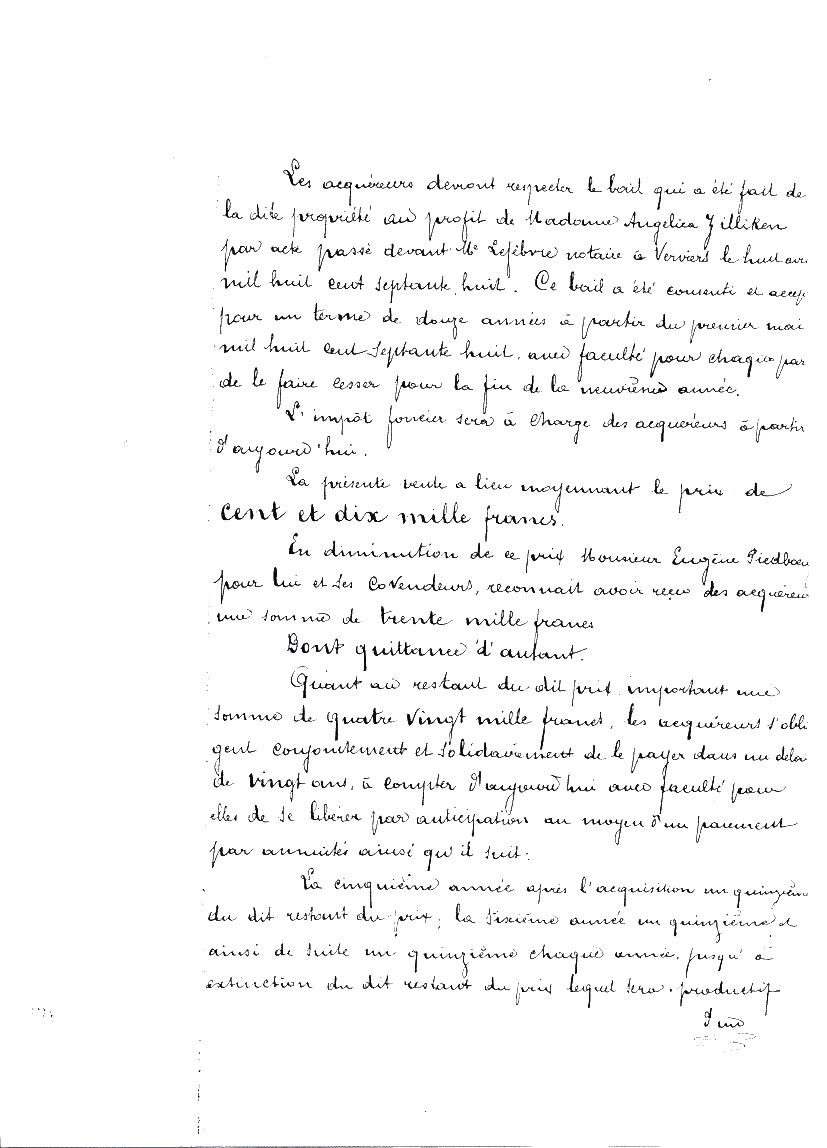 Les acquéreurs devront respecter le bail qui a été fait de
la dite propriété au profit de Madame Angelica Zilliken
par acte passé devant Me Lefèbvre notaire à Verviers le huit avr
mil huit cent septante huit. Ce bail a été consenti et accep
pour un terme de douze années à partir du premier mai
mil huit cent septante huit, avec faculté pour chaque par
de le faire cesser pour la fin de la neuvième année.
L'impôt foncier sera à charge des acquéreurs à partir
d'aujourd'hui.
La présente vente a lieu moyennant le prix de
cent et dix mille francs.
En diminution de ce prix Monsieur Eugène Piedbœu
pour lui et ses covendeurs, reconnait avoir reçu des acquéreu
une somme de trente mille francs
Dont quittance d'autant.
Quant au restant du dit prix important une
somme de quatre vingt mille francs, les acquéreurs s'obli
gent conjointement et solidairement de le payer dans un délai
de vingt ans, à compter d'aujourd'hui avec faculté pour
elles de se libérer par anticipation au moyen d'un paiement
par annuités ainsi qu'il suit:
La cinquième année après l'acquisition un quinzièm
du dit restant du prix, la sixième année un quinzième et
ainsi de suite un quinzième chaque année, jusqu'à
extinction du dit restant du prix lequel sera productif
d'un